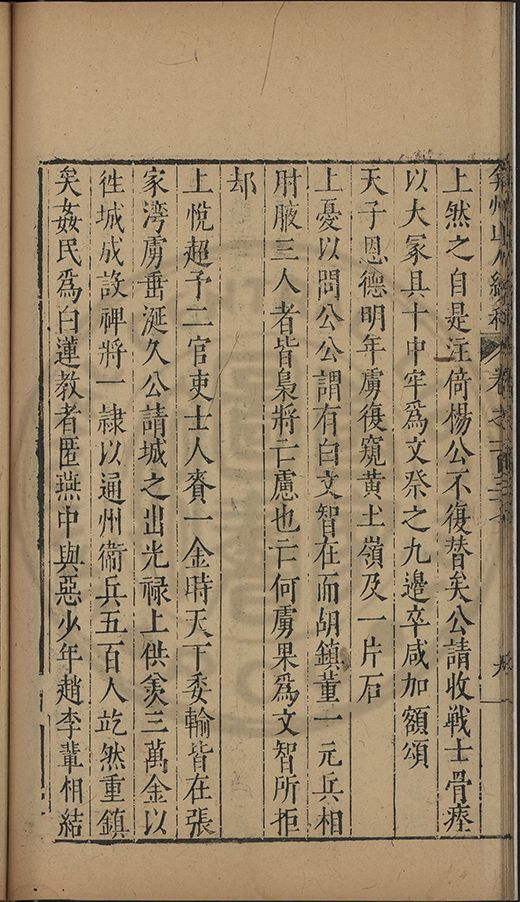 弇州山人續稿 卷之一百三十七 九
上然之自是注倚楊公不復替矣公請收戰士骨瘞
以大冢具十中牢爲文祭之九邊卒咸加額頌
天子恩德明年虜復窺黃土嶺及一片石
上憂以問公公謂有白文智在而胡鎮董一元兵相
肘腋三人者皆梟將亡慮也亡何虜果爲文智所拒
却
上悅超予二官吏士人賚一金時天下委輸皆在張
家湾虜垂涎久公請城之出光禄上供羨三萬金以
徃城成設裨將一隷以通州衞兵五百人屹然重鎮
矣姦民爲白蓮教者匿燕中與惡少年趙李輩相結